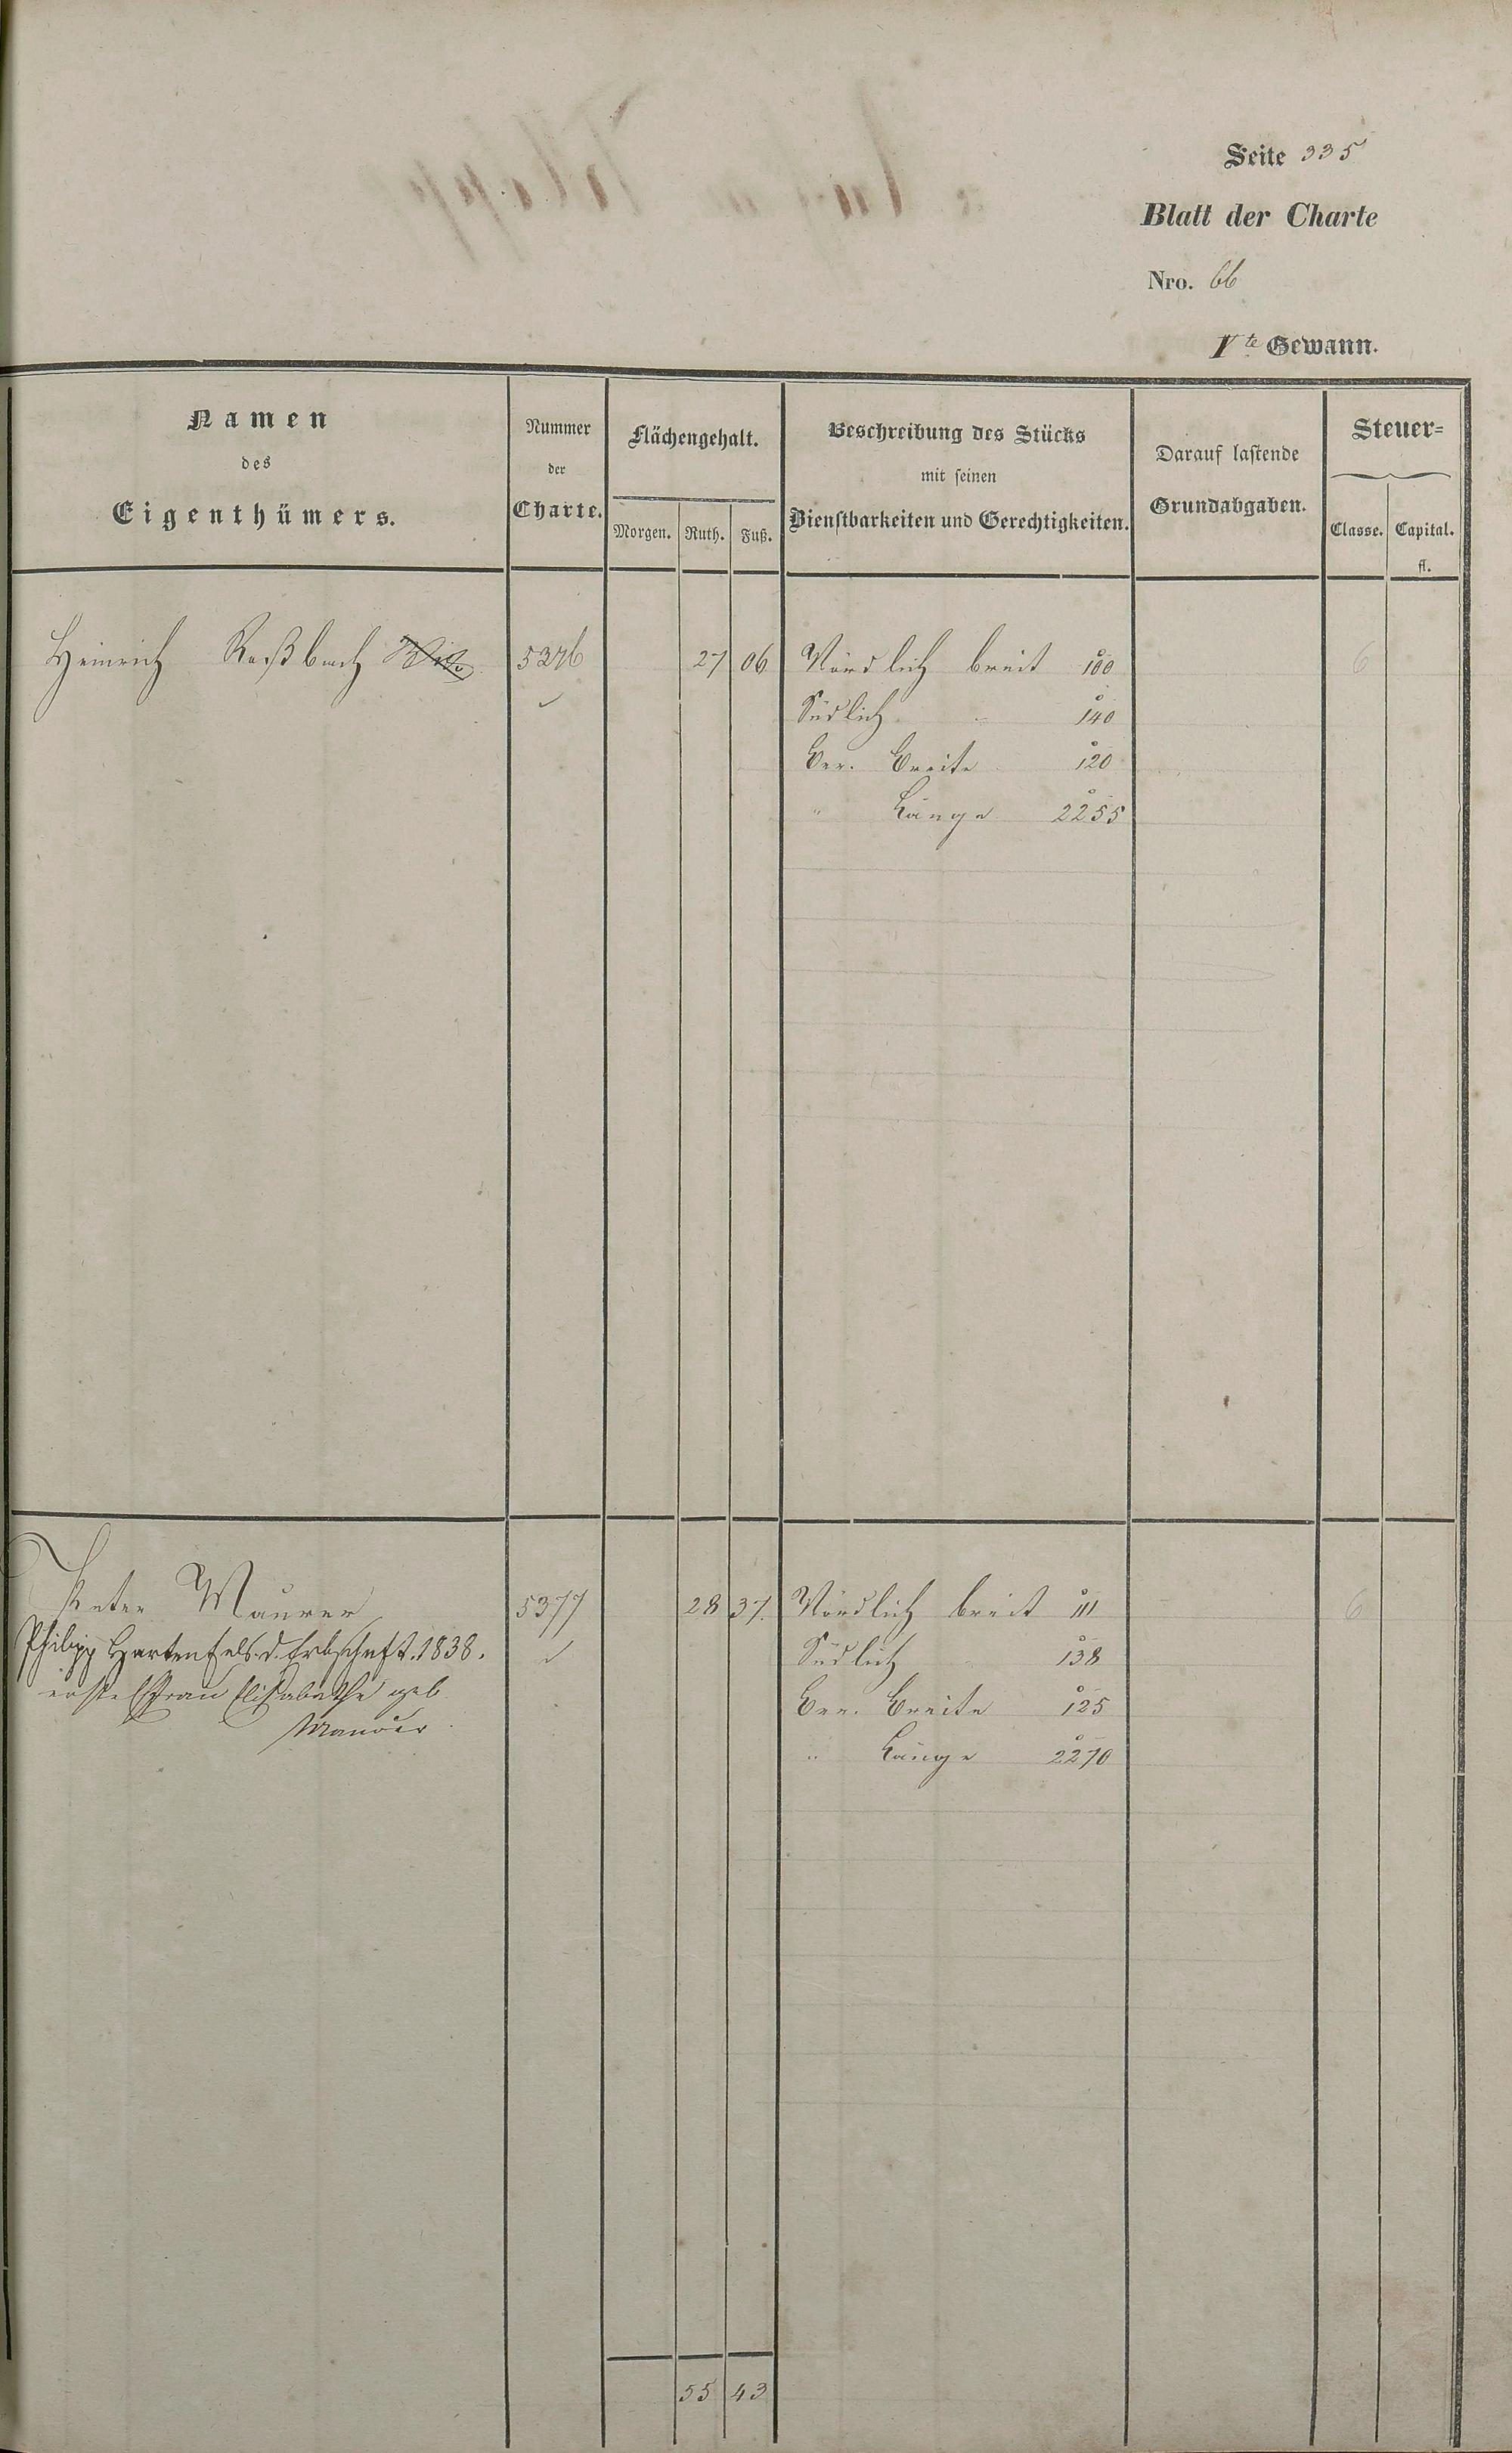 Seite 335
Blatt der Charte
Nro. 66
Vte Gewann.
Namen des Eigenthümers.
Nummer der Charte.
Flächengehalt.
Morgen. Ruth. Fuß.
Beschreibung des Stücks mit seinen Dienstbarkeiten und Gerechtigkeiten.
Darauf lastende Grundabgaben.
Steuer=
Classe. Capital.
fl.
Heinrich Roßbach 5376 27 06 Nördlich breit 100 6
Südlich " 140
Ber. Breite 120
" Länge 2255
Peter Maurer 5377 28 37. Nördlich breit 111 6
Philipp Hartenfels. d. Erbschaft. 1838. Südlich 138
erste Ehfrau Elisabethe geb. Ber. Breite 125
Maurer " Länge 2270
55 43